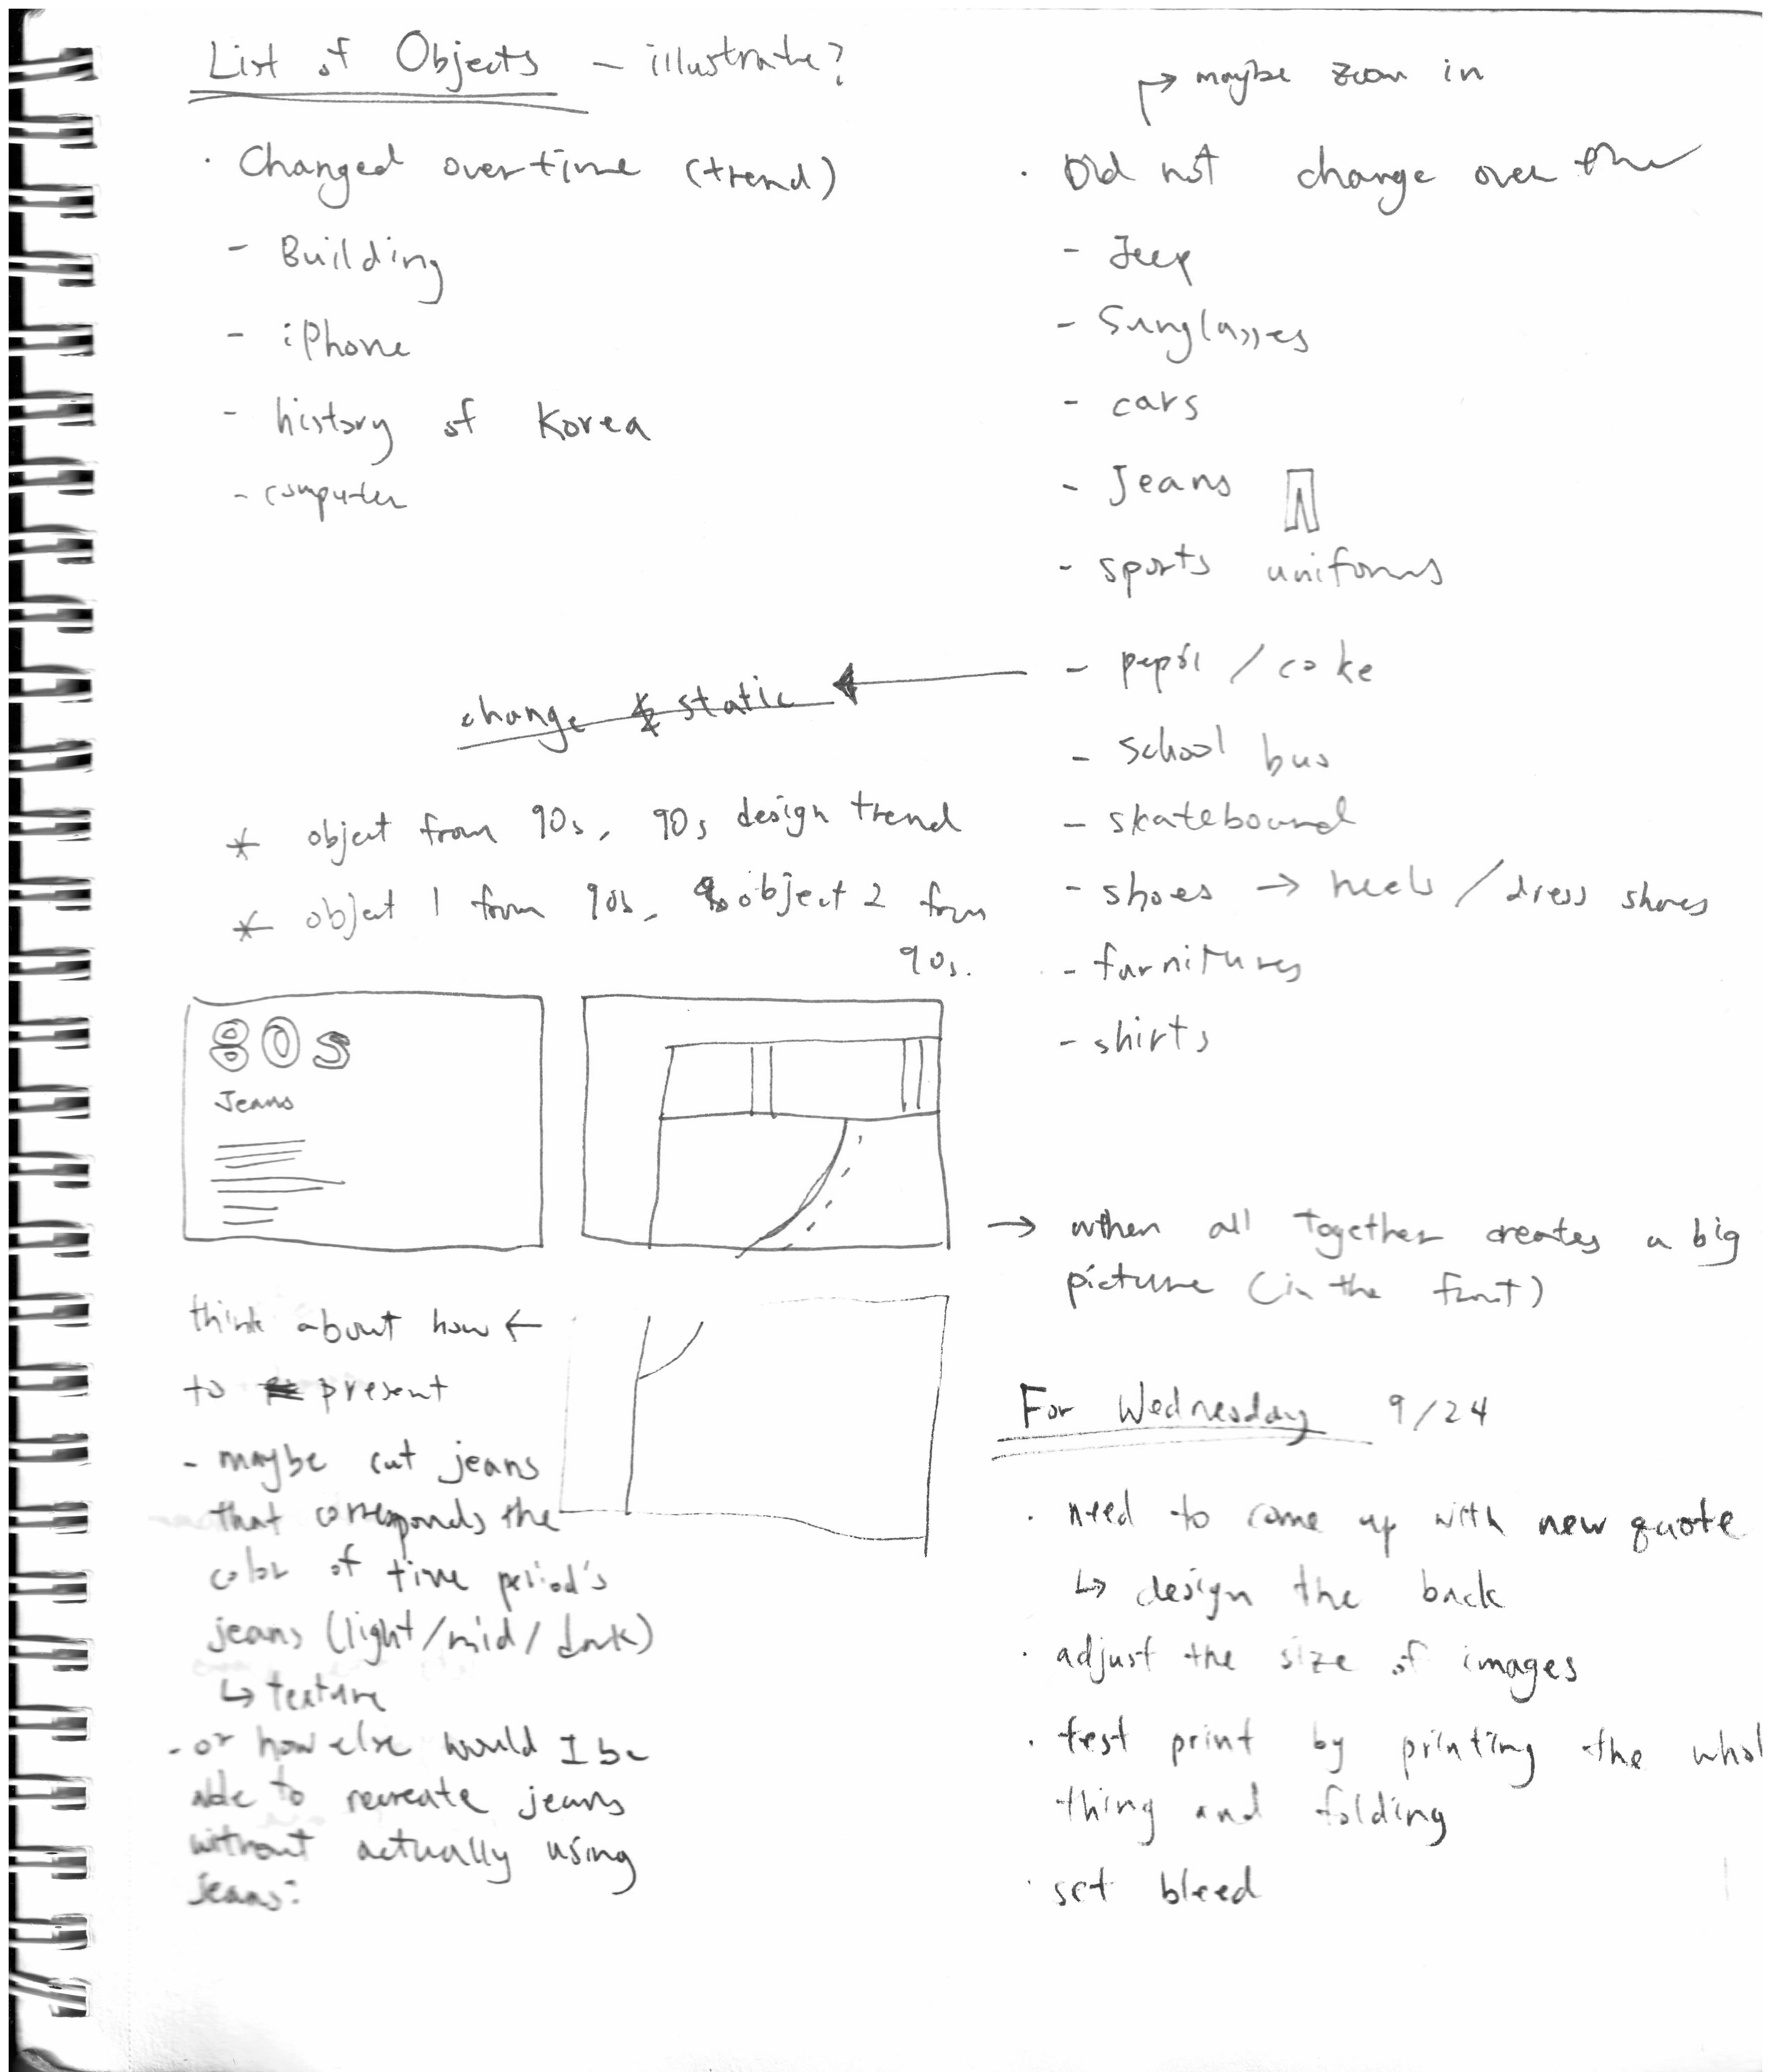 List of Objects - illustrate?
· Changed over time (trend)
- Building
- iPhone
- history of Korea
- computer
→ maybe zoom in
· Did not change over time
- Jeep
- Sunglasses
- cars
- Jeans
- sports uniforms
- pepsi / coke
- school bus
- skateboard
- shoes → heels / dress shoes
- furnitures
- shirts
change & static
* object from 90s, 90s design trend
* object 1 from 90s, object 2 from
90s.
80s
Jeans
→ when all together creates a big
picture (in the front)
think about how ←
to present
- maybe cut jeans
that corresponds the
color of time period's
jeans (light/mid/dark)
↳ texture
- or how else would I be
able to recreate jeans
without actually using
jeans?
For Wednesday 9/24
· need to come up with new quote
↳ design the back
· adjust the size of images
· test print by printing the whol
thing and folding
· set bleed